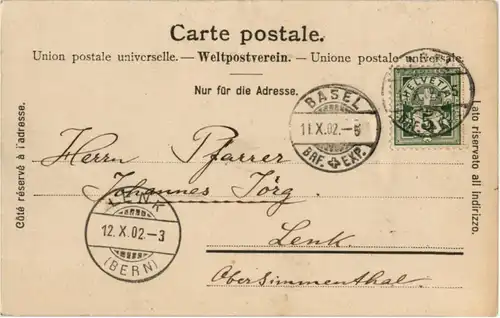 Carte postale.
Union postale universelle. — Weltpostverein. — Unione postale universale.
Nur für die Adresse.
Côté réservé à l'adresse.
lato riservato all indirizzo.
HELVETIA
5
BASEL
11.X.02.—5
BRF. EXP.
Herrn Pfarrer
Johannes Jörg.
Lenk
Obersimmenthal.
LENK
12.X.02.—3
(BERN)